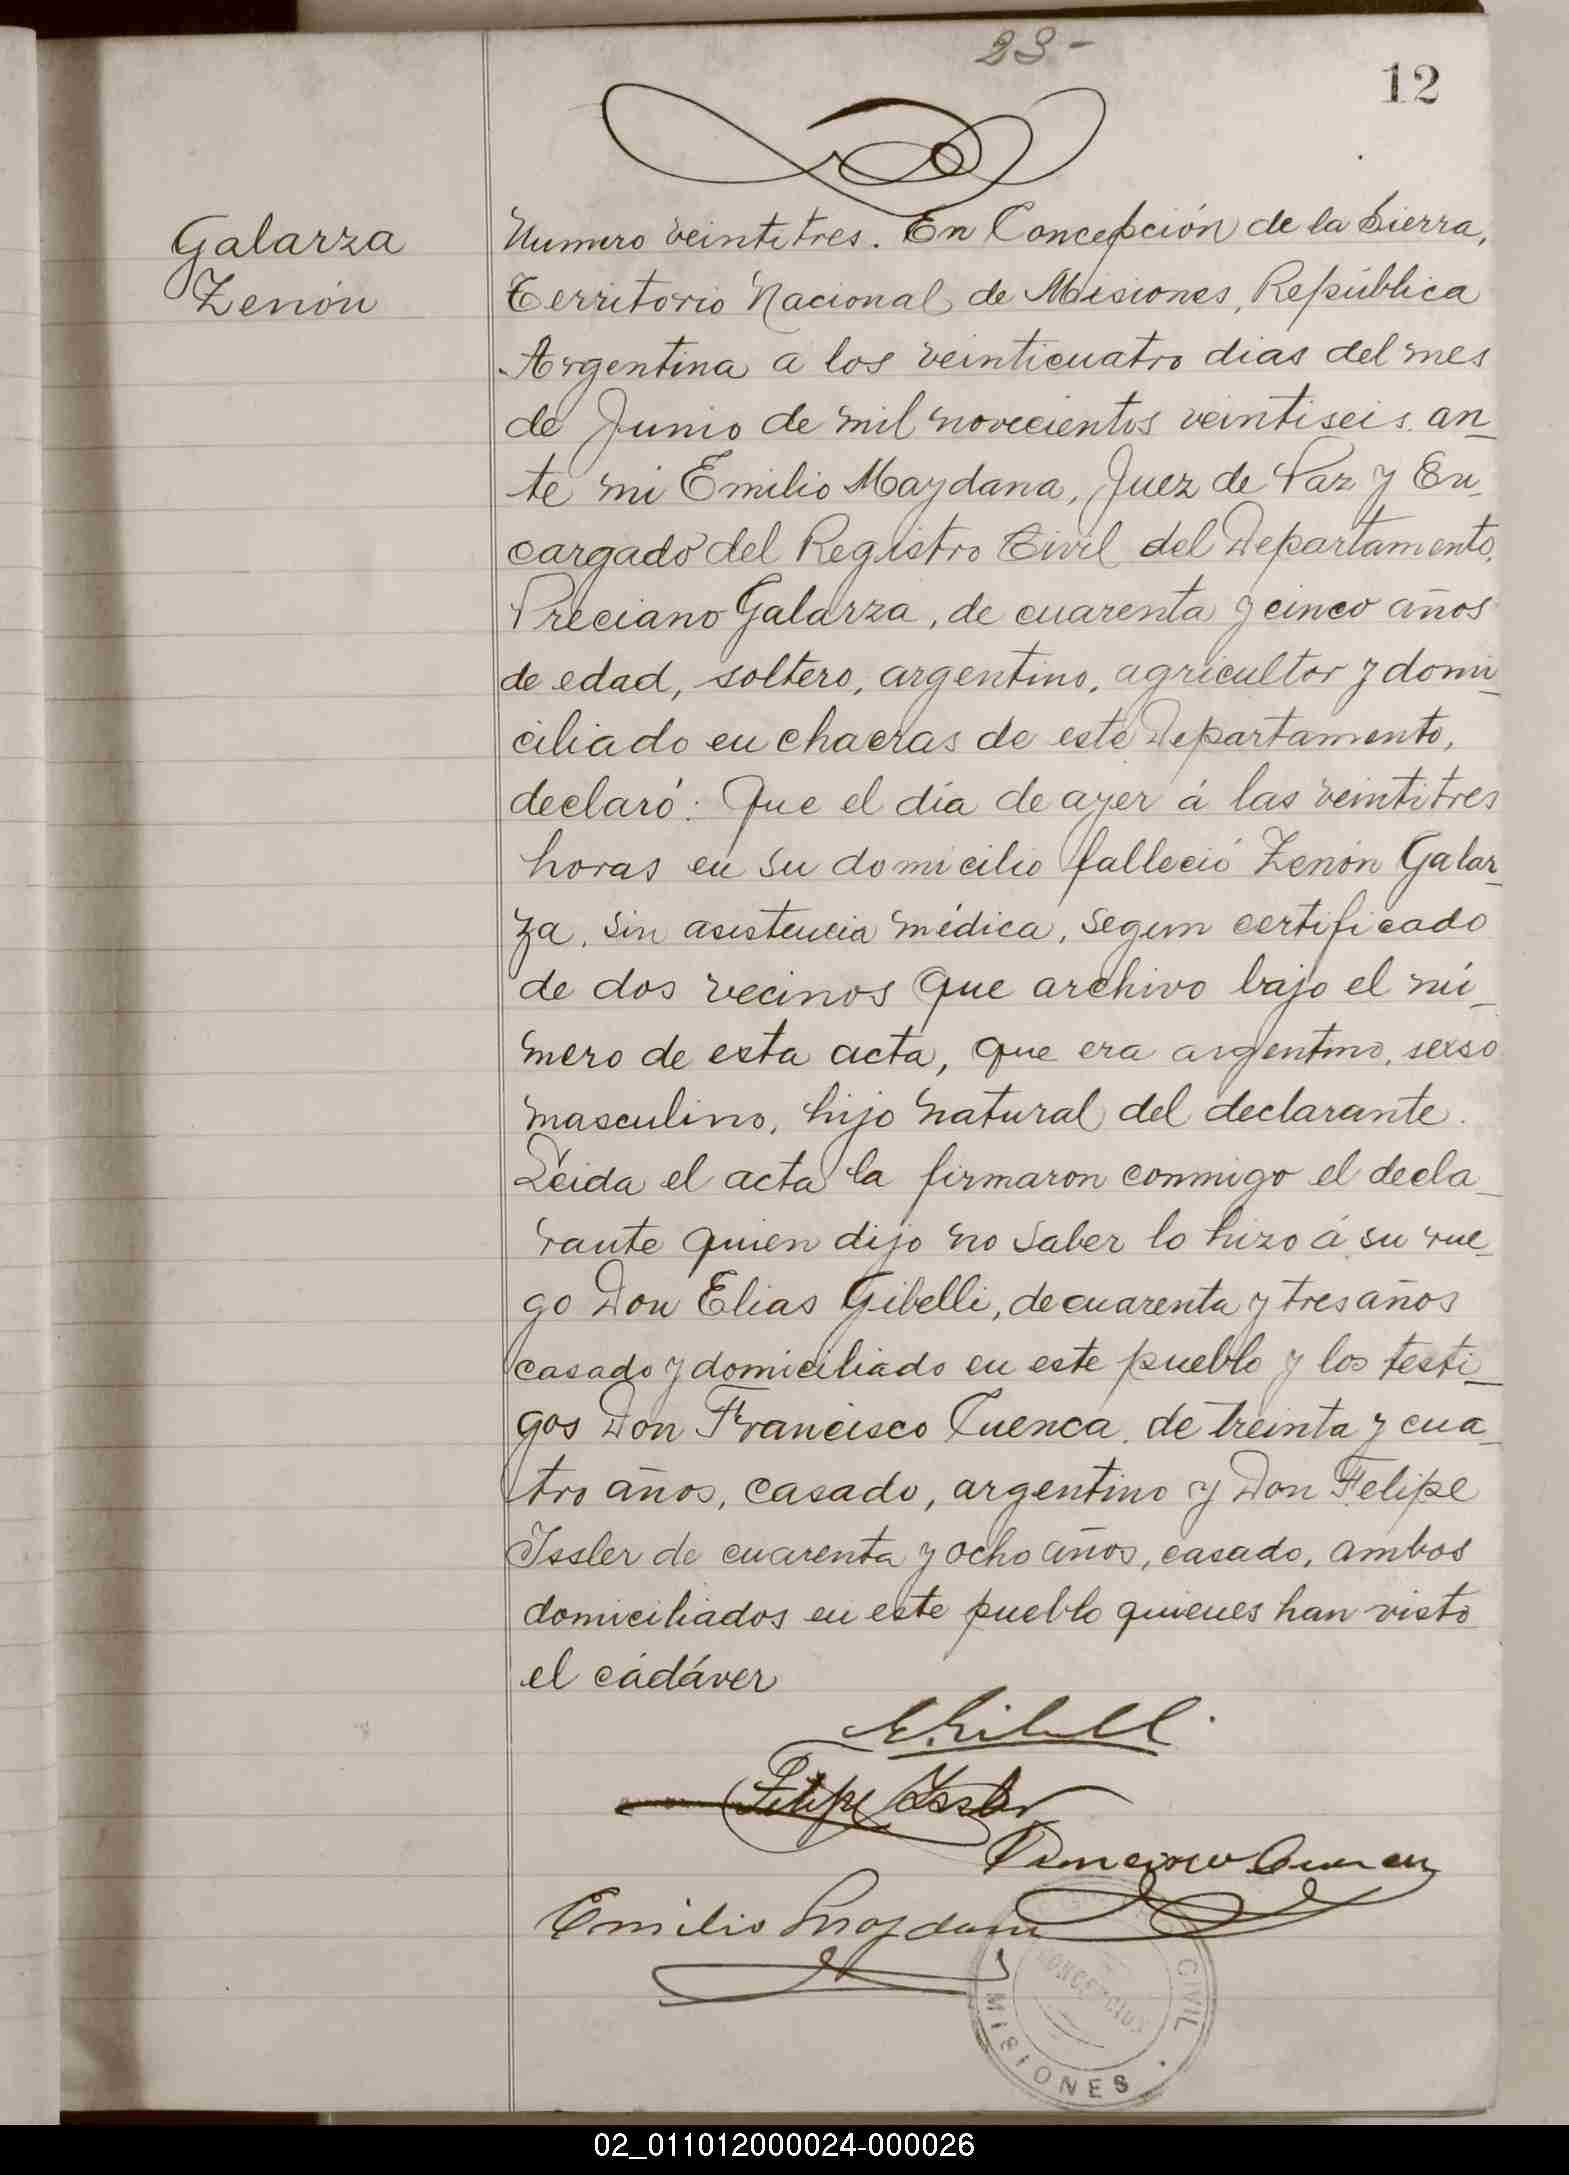 23-
12
Galarza
Zenón
Numero veintitres. En Concepción de la Sierra,
Territorio Nacional de Misiones, República
Argentina a los veinticuatro dias del mes
de Junio de mil novecientos veintiseis an-
te mi Emilio Maydana, Juez de Paz y En-
cargado del Registro Civil del Departamento,
Preciano Galarza, de cuarenta y cinco años
de edad, soltero, argentino, agricultor y domi-
ciliado en chacras de este Departamento,
declaró: Que el día de ayer á las veintitres
horas en su domicilio falleció Zenón Galar-
za, sin asistencia médica, segun certificado
de dos vecinos que archivo bajo el nú-
mero de esta acta, que era argentino, sexso
masculino, hijo natural del declarante.
Leida el acta la firmaron conmigo el decla-
rante quien dijo no saber lo hizo á su rue-
go Don Elias Gibelli, de cuarenta y tres años
casado y domiciliado en este pueblo y los testi-
gos Don Francisco Cuenca, de treinta y cua-
tro años, casado, argentino y Don Felipe
Issler de cuarenta y ocho años, casado, ambos
domiciliados en este pueblo quienes han visto
el cádáver
E. Gibelli
Felipe Issler
Francisco Cuenca
Emilio Maydana
CIVIL
CONCEPCION
MISIONES
02_011012000024-000026